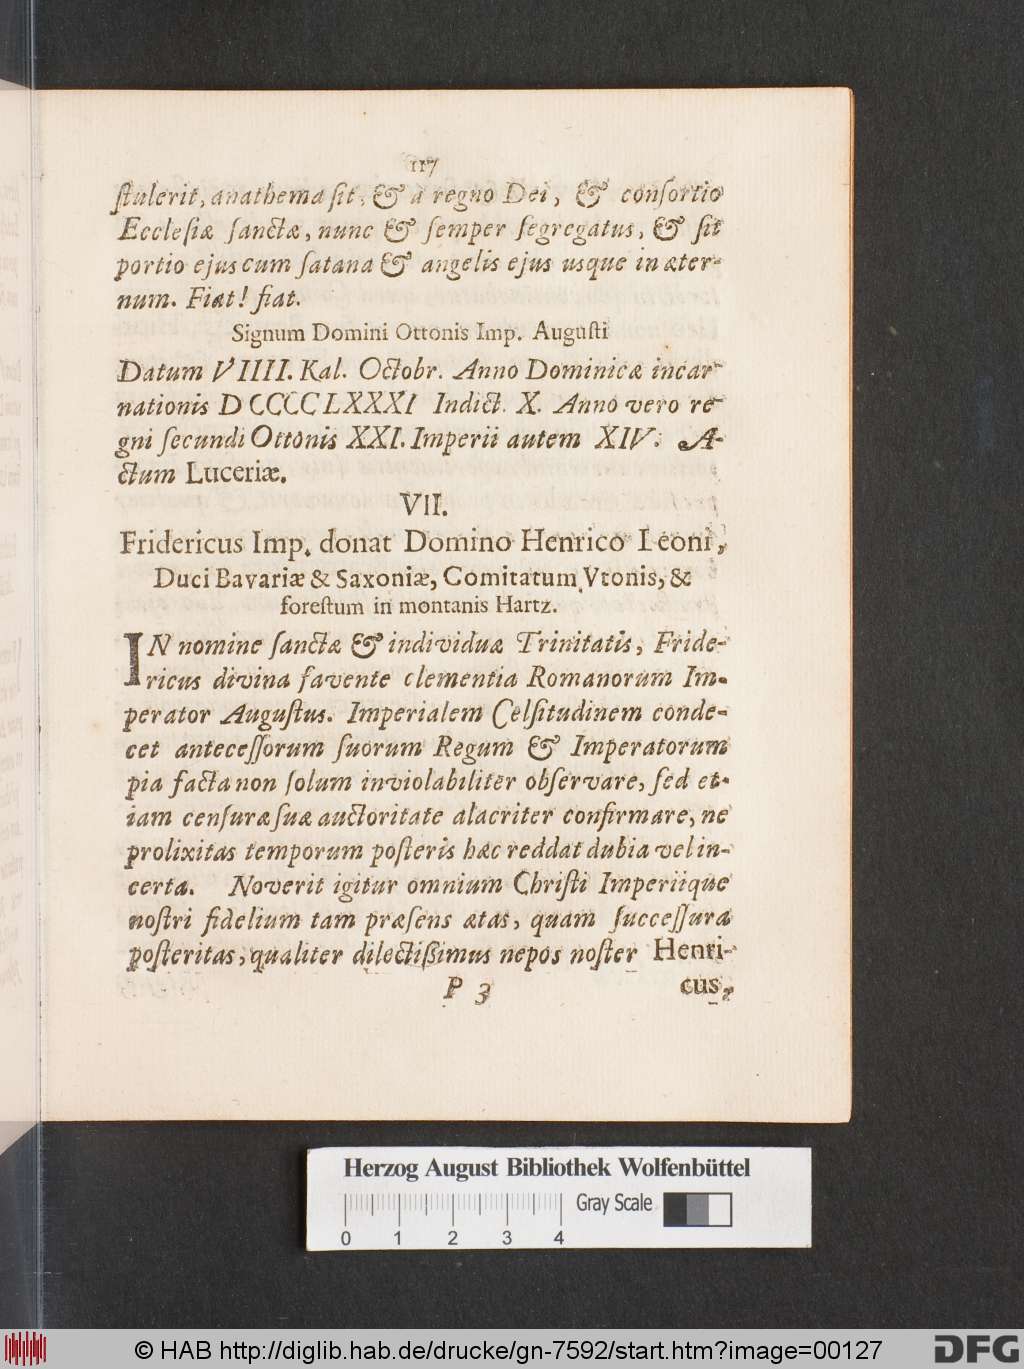 117
ſtulerit, anathema ſit, & a regno Dei, & conſortio
Eccleſiæ ſanctæ, nunc & ſemper ſegregatus, & ſit
portio ejus cum ſatana & angelis ejus usque in æter-
num. Fiat! fiat.
Signum Domini Ottonis Imp. Auguſti
Datum VIIII. Kal. Octobr. Anno Dominicæ incar-
nationis DCCCCLXXXI Indict. X. Anno vero re-
gni ſecundi Ottonis XXI. Imperii autem XIV. A-
ctum Luceriæ.
VII.
Fridericus Imp. donat Domino Henrico Leoni,
Duci Bavariæ & Saxoniæ, Comitatum Vtonis, &
foreſtum in montanis Hartz.
IN nomine ſanctæ & individuæ Trinitatis, Fride-
ricus divina favente clementia Romanorum Im-
perator Auguſtus. Imperialem Celſitudinem conde-
cet anteceſſorum ſuorum Regum & Imperatorum
pia facta non ſolum inviolabiliter obſervare, ſed et-
iam cenſuræ ſuæ auctoritate alacriter confirmare, ne
prolixitas temporum poſteris hæc reddat dubia vel in-
certa. Noverit igitur omnium Chriſti Imperiique
noſtri fidelium tam præſens ætas, quam ſucceſſura
poſteritas, qualiter dilectißimus nepos noſter Henri-
P 3 cus,
Herzog August Bibliothek Wolfenbüttel
Gray Scale
0 1 2 3 4
© HAB http://diglib.hab.de/drucke/gn-7592/start.htm?image=00127
DFG